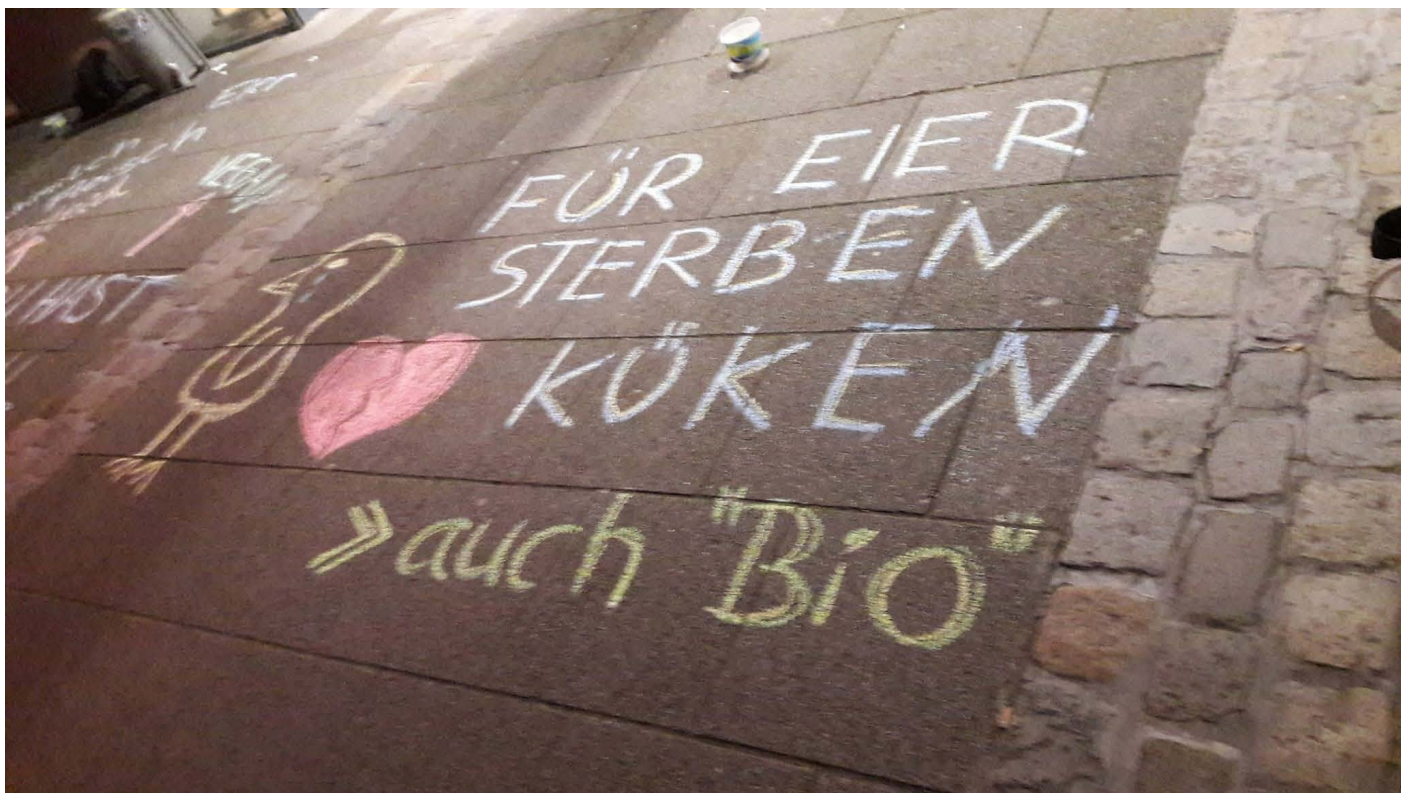 FÜR EIER
STERBEN
KÖKEN
» auch "Bio"
HAST